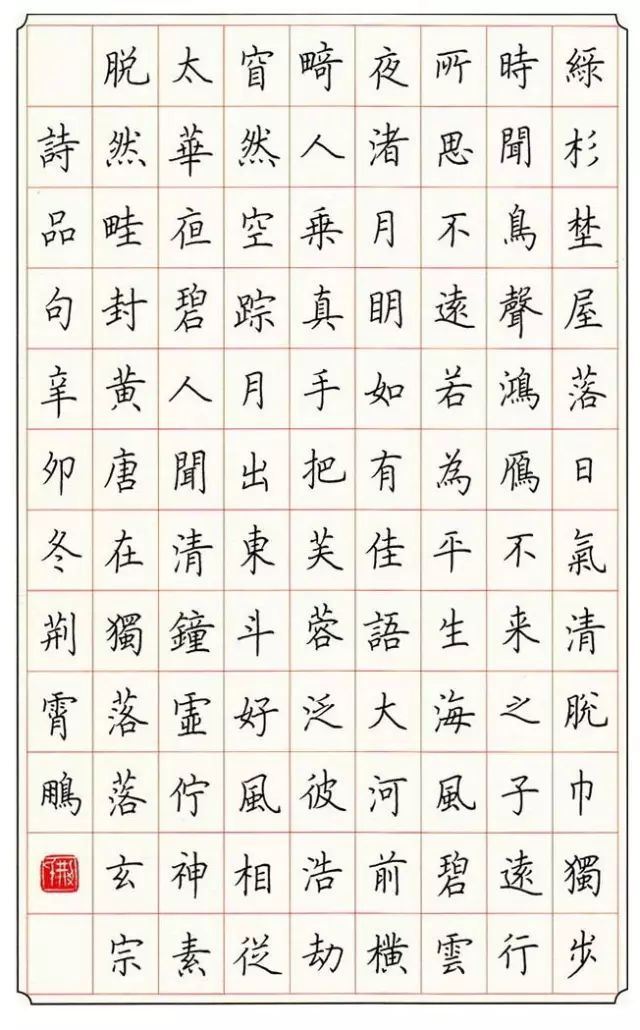 綠杉埜屋落日氣清脫巾獨步
時聞鳥聲鴻鴈不来之子遠行
所思不遠若為平生海風碧雲
夜渚月眀如有佳語大河前橫
畸人乗真手把芙蓉泛彼浩劫
窅然空踪月出東斗好風相從
太華夜碧人聞清鐘虛佇神素
脱然畦封黄唐在獨落落玄宗
詩品句辛卯冬荆霄鵬